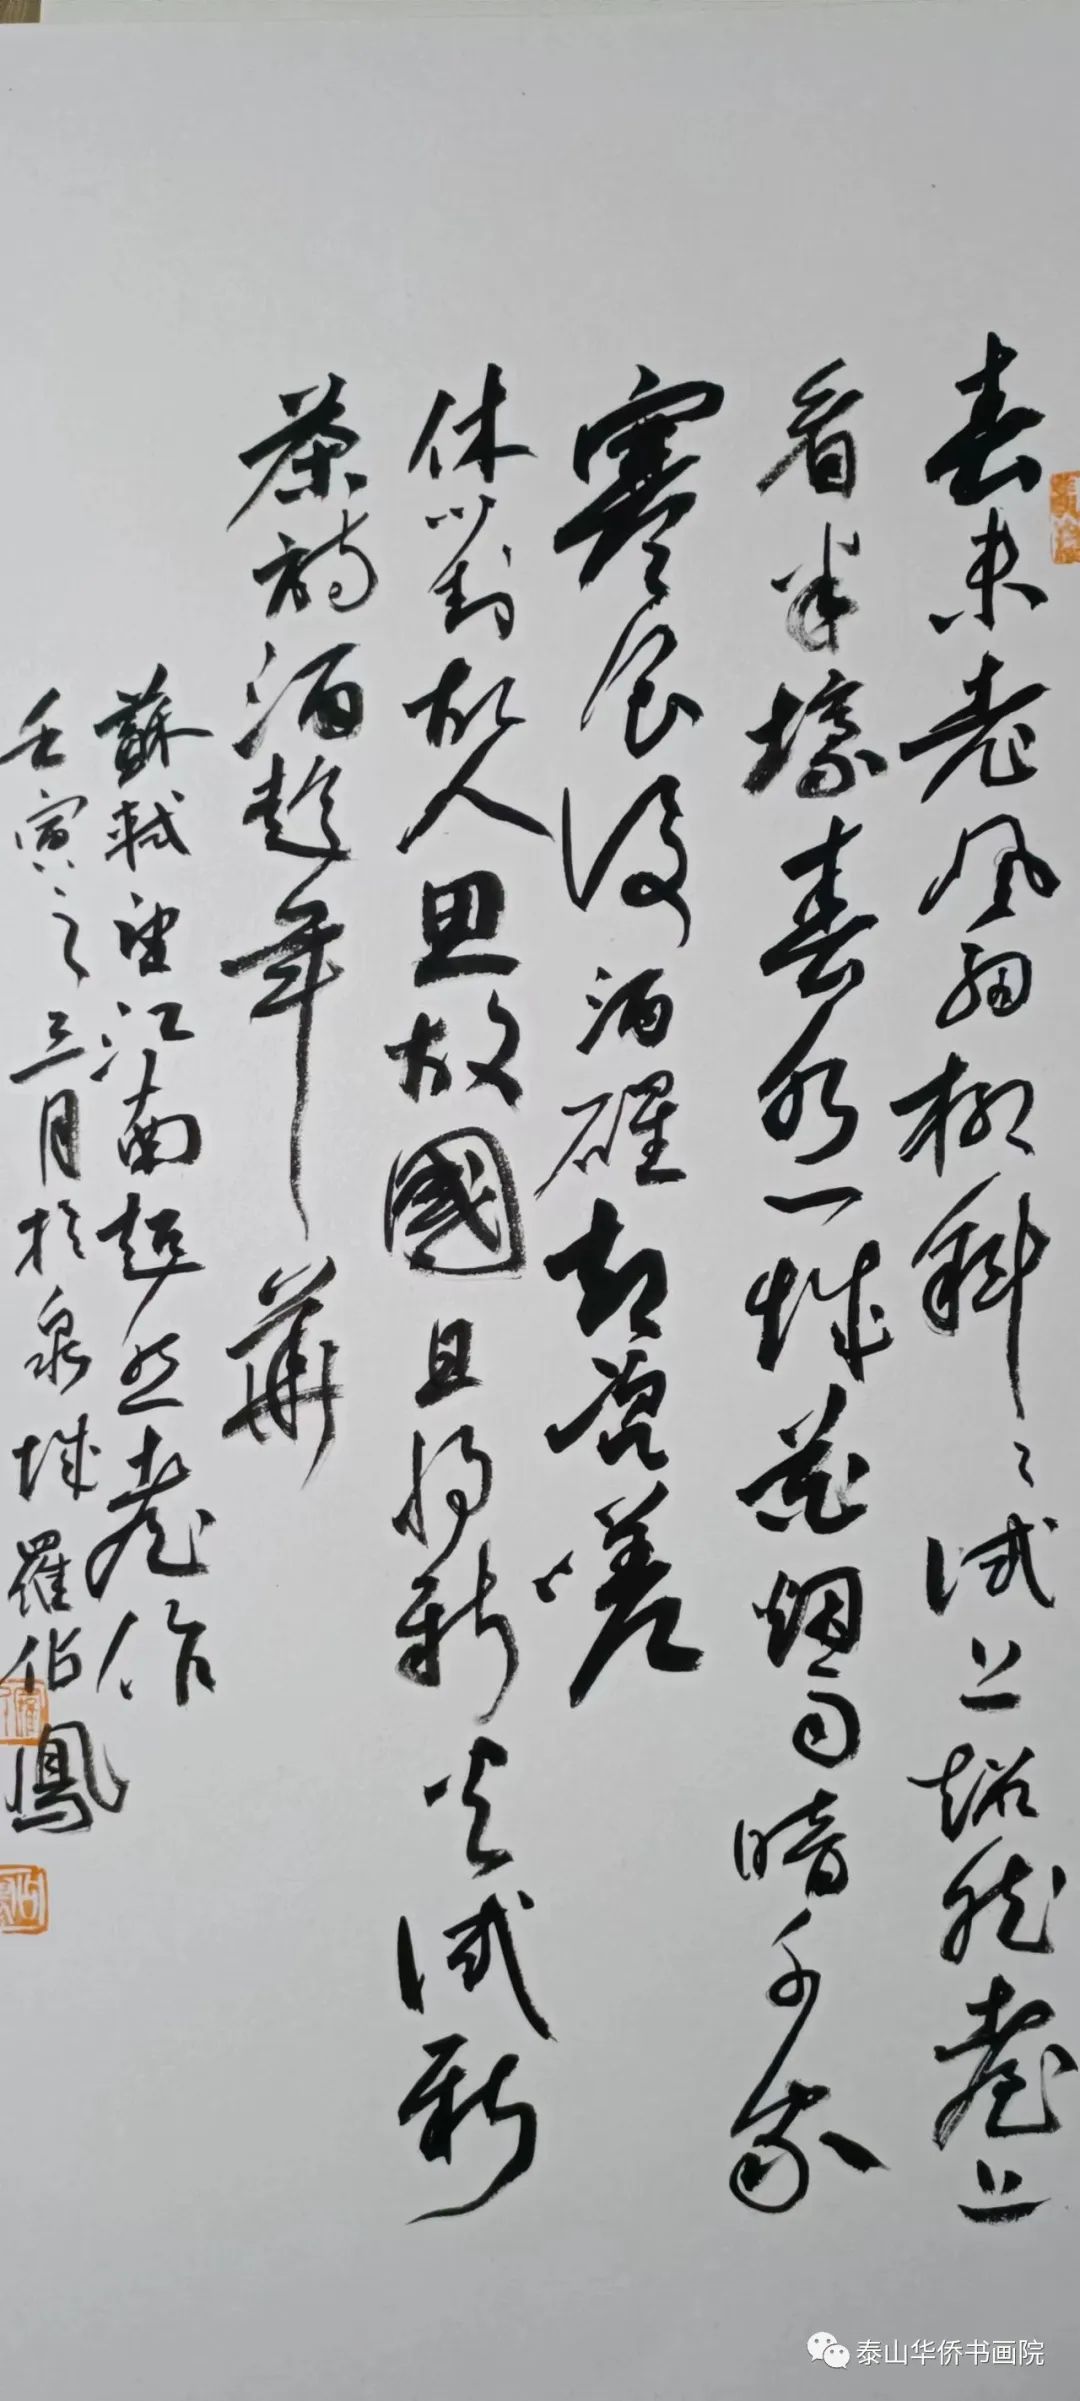 春未老風細柳斜〻試上超然臺上
看半壕春水一城花烟雨暗千家
寒食後酒醒却咨嗟
休對故人思故國且將新火試新
茶詩酒趁年華
蘇軾望江南超然臺作
壬寅之三月於泉城羅伯鳳
泰山华侨书画院